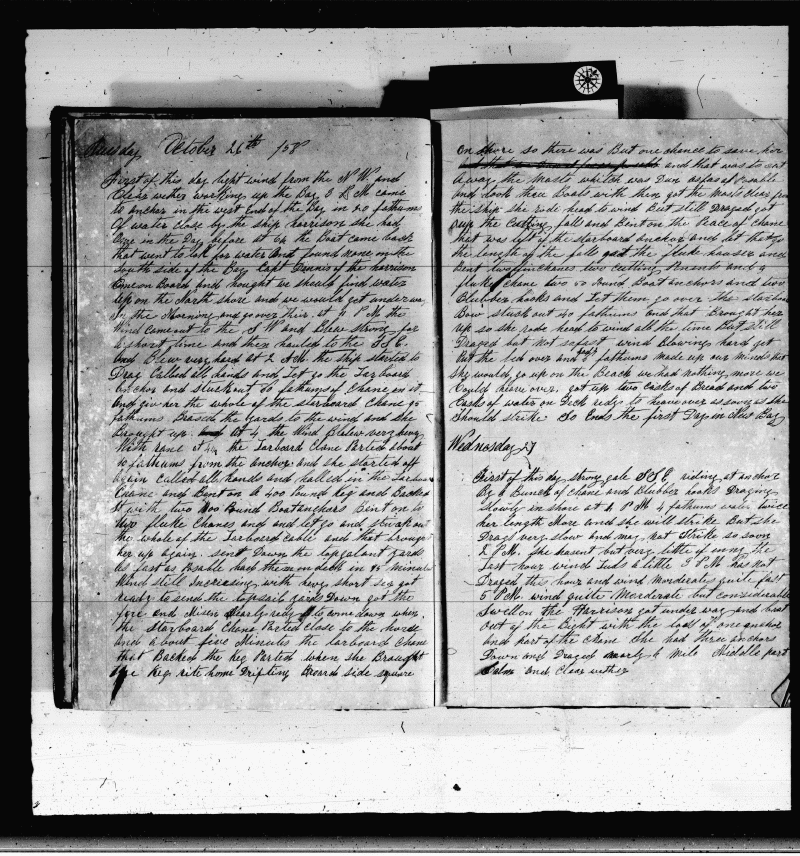 Tuesday October 26th /58
First of this day light wind from the N W and
Clear wether working up the Bay 3 P M came
to anchor in the west End of the Bay in 20 fathoms
of water close by the ship harrison she had
in the Day before at 6 the Boat came back
that went to look for water and found none on the
South side of the Bay Capt Dennis of the harrison
Came on Board and thought we should find water
up on the North shore and we would get under way
in the Morning and go over thir. at 11 P M the
Wind came out to the S W and Blew strong for
a short time and then hauled to the S S E
and Blew very hard at 2 A M the ship started to
Drag Called all hands and Let go the Larboard
anchor and Stuck out 60 fathoms of Chane on it
and give her the whole of the starboard Chane 75
fathoms Brased the yards to the wind and she
Brought up at 4 the Wind Blew very hevy
With rane at 4½ the Larboard Chane Parted about
10 fathums from the anchor and she started off
again Called all hands and halled in the Larboard
Chane and Bent on a 400 Pound Keg and Backed
it with two 100 Pound Boatanchors Bent on to
two fluke Chanes and and let go and struck out
the whole of the Larboard cable and that brought
her up again. sent Down the topgalant yards
as fast as Posable had them on deck in minuts
Wind still Increasing with hevy short Sea got
ready to send the topsail yards Down got the
fore and Misen nearly redy to come down when
the Starboard Chane Parted close to the
and about five Minutes the Larboard Chane
that Backed the Keg Parted when she Braught
the Keg rite home Drifting Board side square
on shore so there was But one chance to save her
and that was to cut
away the Masts which was Dun as fas as Posable
and took thau Boats with then got the Masts clear from
the ship she rode head to wind But still Draged got
up the Cutting fall and Bent on the Peace of chane
that was left of the starboard anchor and let that go
the length of the fall got the fluke hauser and
Bent two finchanes two cutting and 4
fluke chane two 50 Pound Boat anchors and two
Blubber hooks and Let them go over the starboard
Bow stuck out 40 fathoms and that Brought her
up so she rode head to wind all the time But still
Draged But not so fast wind Blowing hard got
out the led over and fathoms made up our minds that
She would go up on the Beach we had nothing more we
Could heave over. got up two Casks of Bread and two
Casks of water on Deck redy to heave over as soon as she
Should strike So Ends the first Day in New Bay
Wednesday 27
First of this day strong gale S S E riding at anchor
By a Bunch of Chane and Blubber hooks Draging
slowly in shore at 1 P M 4 fathums water twice
her length More and she will strike But she
Drags very slow and may not Strike so soon
2 P.M. She hasent but very little of enny the
Last hour wind Luls a little 3 P M has not
Draged the hour and wind Morderate quite fast
5 P M wind quite Morderate but considerable
Swell on the Harrison got under way and beat
Out of the Bight with the loss of one anchor
and Part of the Chane She had three anchors
Down and Draged nearly ½ mile Middle part
Calm and Clear wether